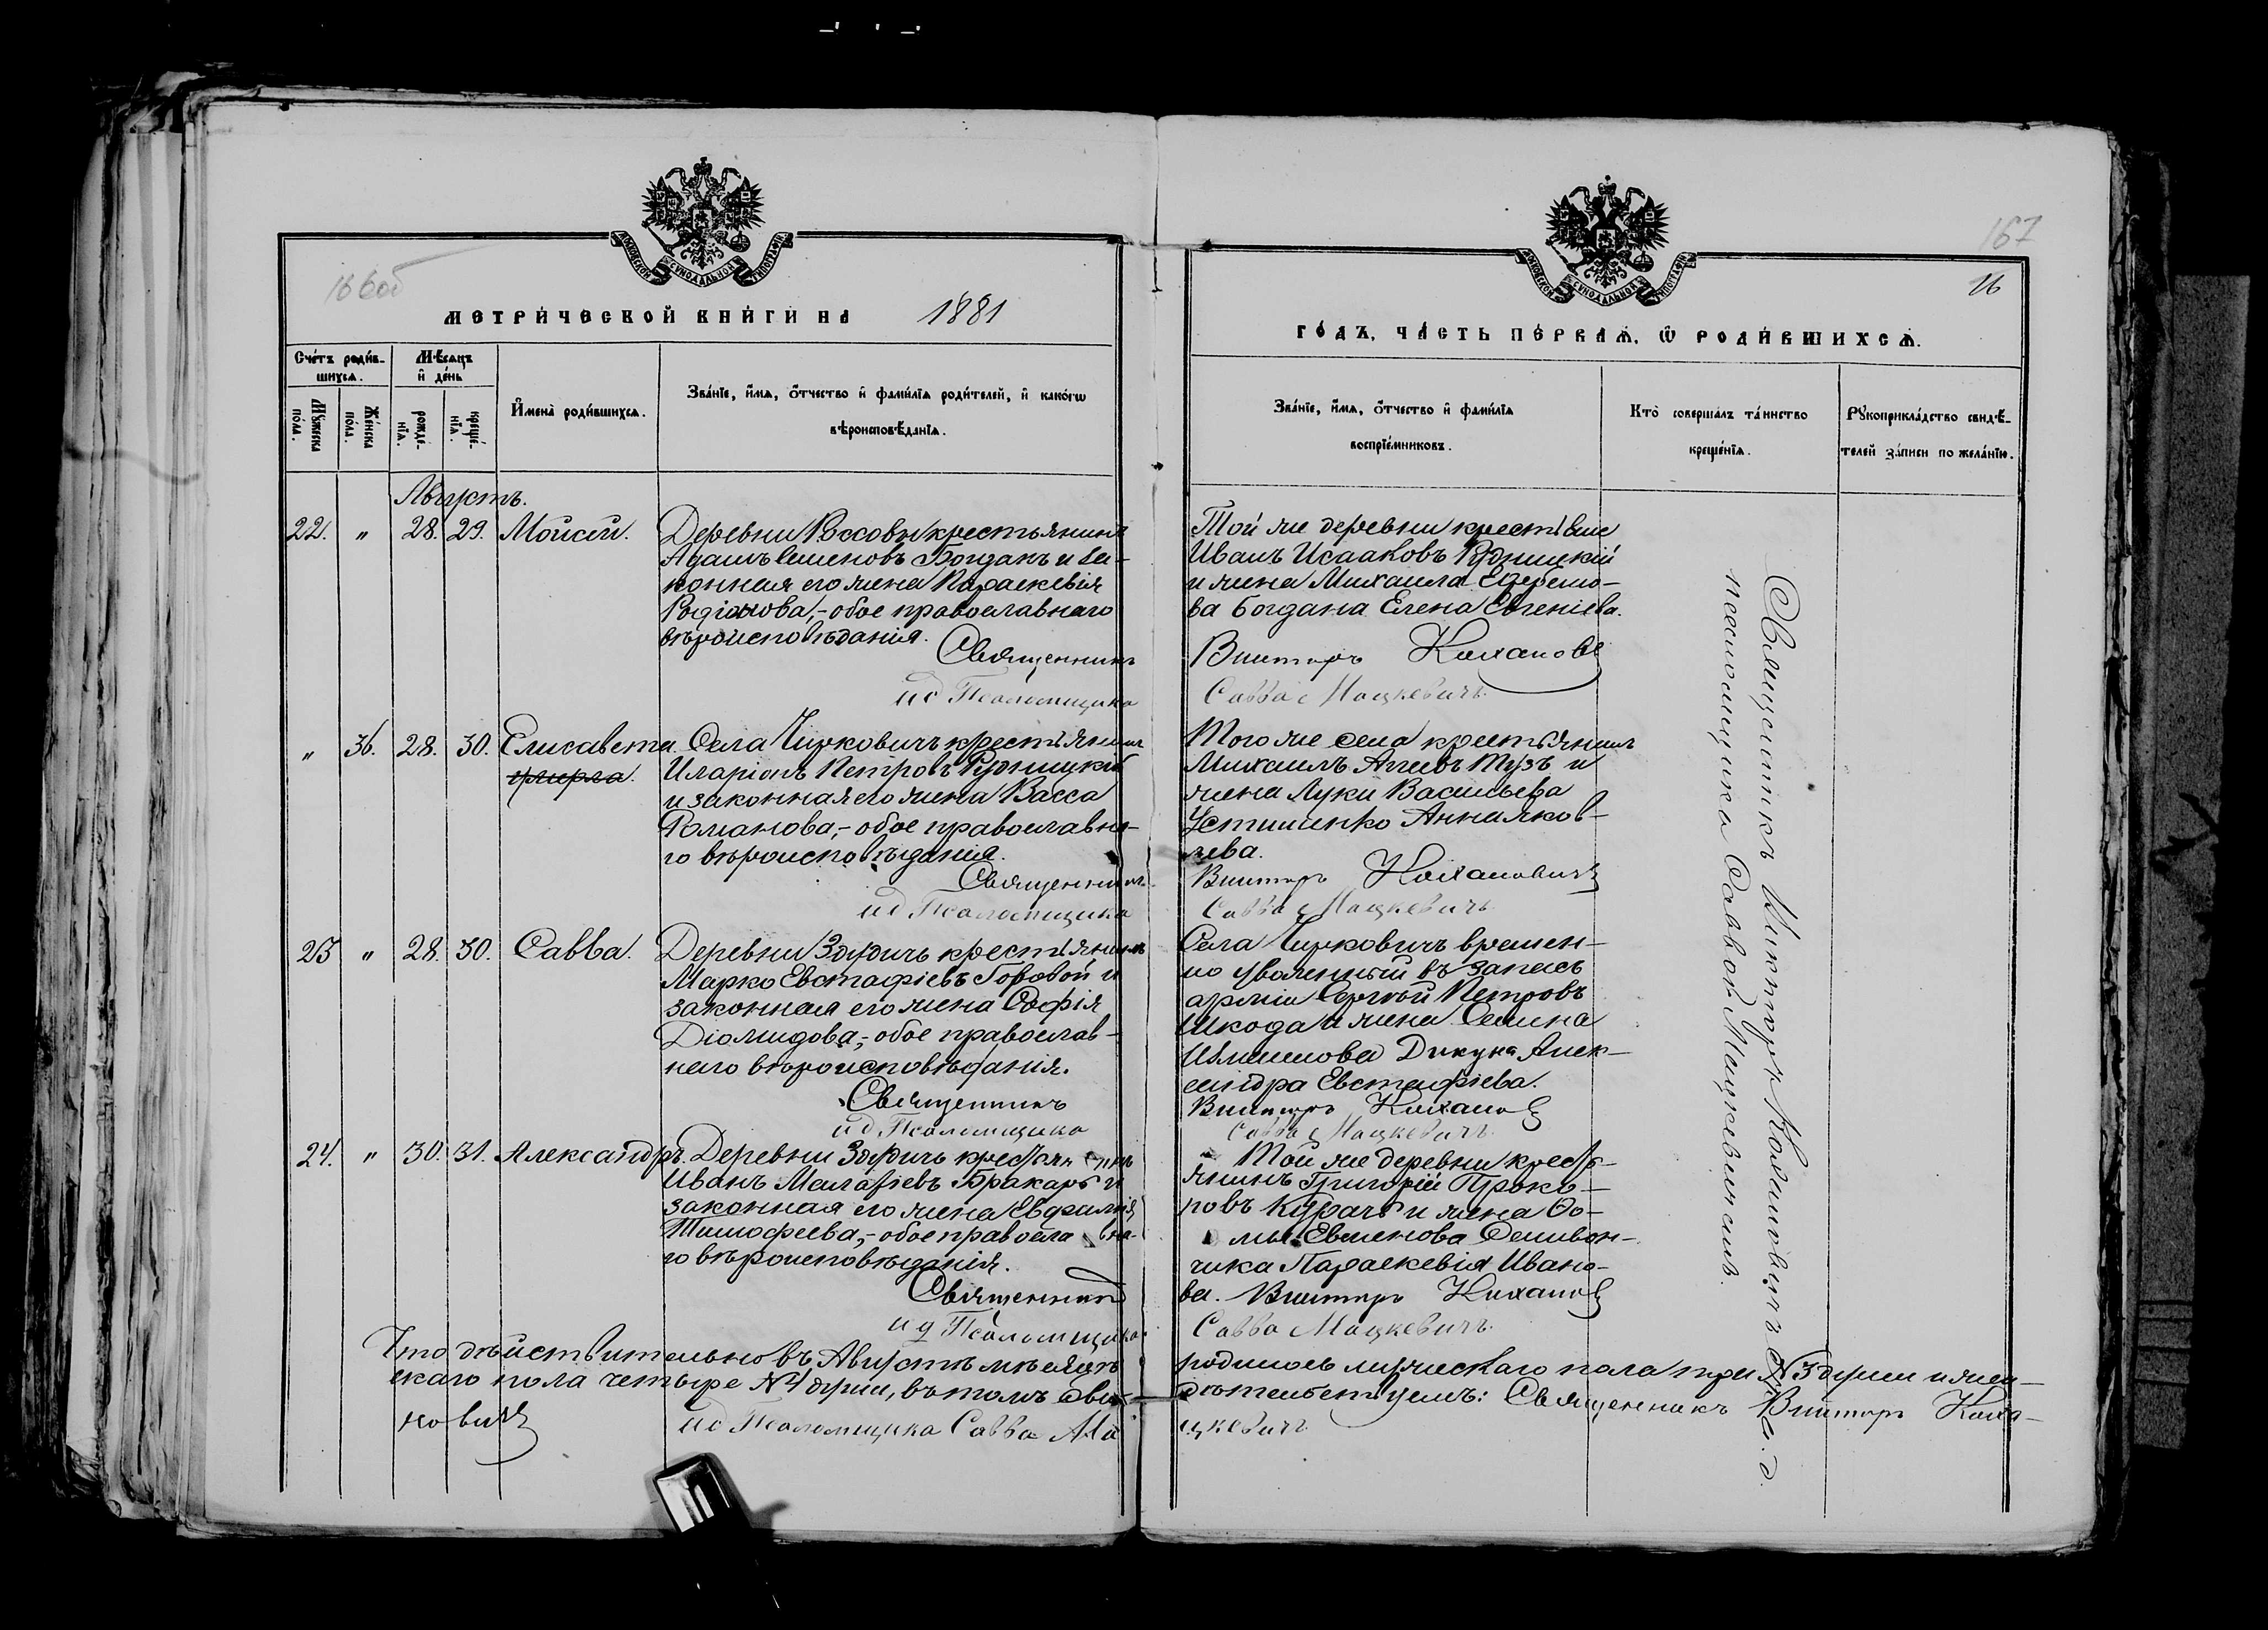 166об
МЕТРИЧЕСКОЙ КНИГИ НА 1881
Счетъ родив-
шихся.
Мѣсяцъ
и день
Мужеска
пола.
Женска
пола.
рожде-
нія.
креще-
нія.
Имена родившихся.
Званіе, имя, отчество и фамилія родителей, и какогѡ
вѣроисповѣданія.
Августъ.
22. " 28. 29. Моисей. Деревни крестьянинъ
Адамъ Семеновъ Богданъ и за-
конная его жена Параскевія
Родіонова,- обое православнаго
вѣроисповѣданія.
Священникъ
ид Псаломщика
" 36. 28. 30. Елисавета. Села Чирковичъ крестьянинъ
Иларіонъ Петровъ Рудницкій
и законная его жена Васса
Романова,- обое православна-
го вѣроисповѣданія.
Священникъ
ид Псаломщика
23 " 28. 30. Савва. Деревни Здудичъ крестьянинъ
Марко Евстафіевъ Горовой и
законная его жена Софія
Діомидова,- обое православ-
наго вѣроисповѣданія.
Священникъ
ид Псаломщика
24. " 30. 31. Александръ. Деревни Здудичъ крестьянинъ
Иванъ Малафіевъ Бракаръ и
законная его жена Евфимія
Тимофеева,- обое православна-
го вѣроисповѣданія.
Священникъ
ид Псаломщика
Что дѣйствительно въ Августѣ мѣсяцѣ
скаго пола четыре №4 души, въ томъ сви-
новичъ
ид Псаломщика Савва Ма
167
16
ГОДЪ, ЧАСТЬ ПЕРВАЯ, Ѡ РОДИВШИХСЯ.
Званіе, имя, отчество и фамилія
воспріемниковъ.
Кто совершалъ таинство
крещенія.
Рукоприкладство свидѣ-
телей записи по желанію.
Той же деревни крестьяне
Иванъ Исааковъ Рудницкій
и жена Михаила Ефремо-
ва Богдана Елена Евгеніева.
Викторъ Кохановичъ
Савва Мацкевичъ
Того же села крестьянинъ
Михаилъ Агеевъ Тузъ и
жена Луки Васильева
Устименко Анна Яков-
лева.
Викторъ Кохановичъ
Савва Мацкевичъ
Села Чирковичъ времен-
но уволенный въ запасъ
арміи Сергѣй Петровъ
Шкода и жена Семена
Дикуна Алек-
сандра Евстафіева.
Викторъ Кохановичъ
Савва Мацкевичъ
Той же деревни кресть-
янинъ Григорій Проко-
повъ Курачъ и жена Ѳо-
мы Евменова Селивон-
чика Параскевія Ивано-
ва. Викторъ Кохановичъ
Савва Мацкевичъ
родилось мужескаго пола три №3 души и жен-
дѣтельствуемъ: Священникъ Викторъ Коха-
цкевичъ
Священникъ Викторъ Кохановичъ съ и. д.
псаломщика Саввой Мацкевичемъ.